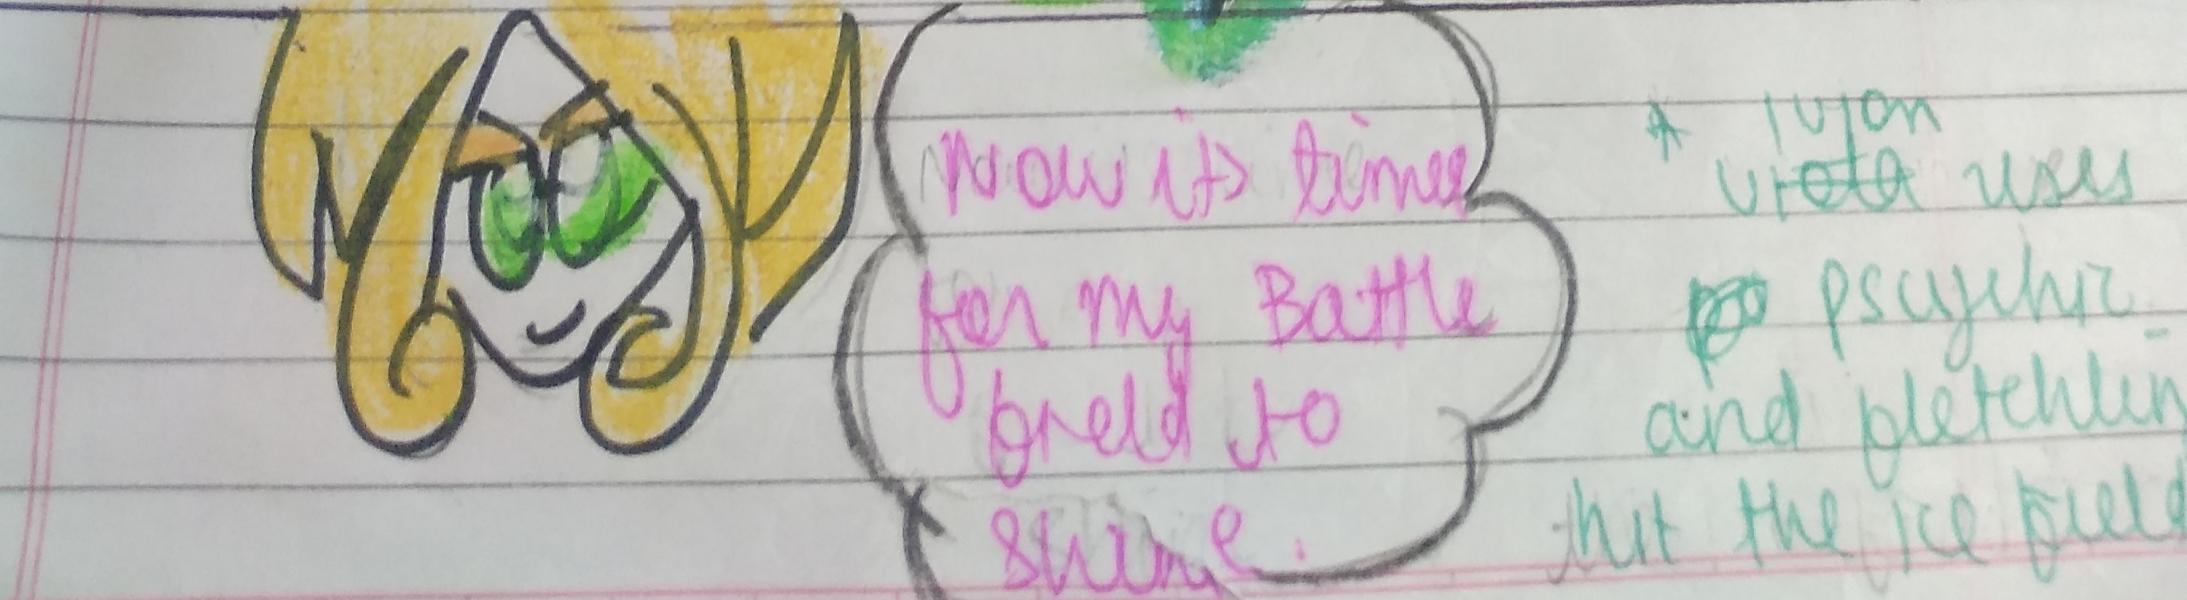 Now its time
for my Battle
field to
shine.
* lujon
uses
psychic
and fletchlin
hit the ice field